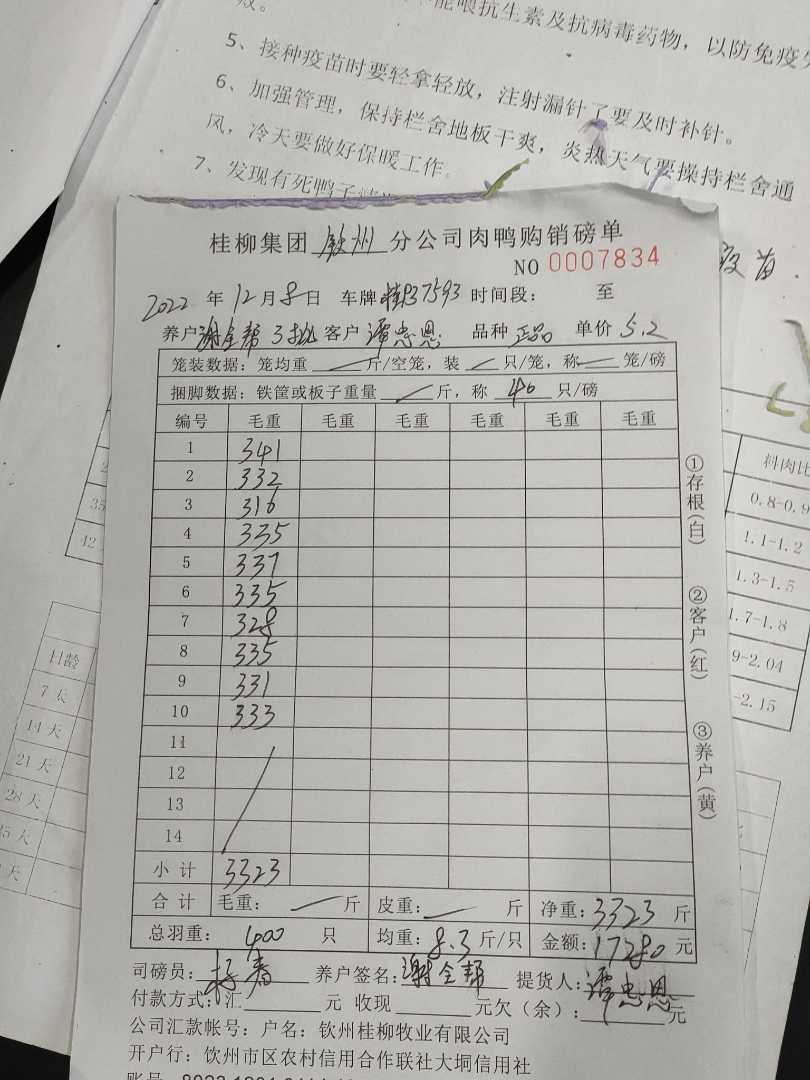 能喂抗生素及抗病毒药物，以防免疫失
败。
5、接种疫苗时要轻拿轻放，注射漏针了要及时补针。
6、加强管理，保持栏舍地板干爽，炎热天气要操持栏舍通
风，冷天要做好保暖工作。
7、发现有死鸭子
桂柳集团 钦州 分公司肉鸭购销磅单
NO 0007834
2022 年 12 月 8 日 车牌 桂P37593 时间段： 至
养户 谢全帮 3批 客户 谭忠恩 品种 正品 单价 5.2
笼装数据：笼均重 / 斤/空笼，装 / 只/笼，称 / 笼/磅
捆脚数据：铁筐或板子重量 / 斤，称 40 只/磅
编号 毛重 毛重 毛重 毛重 毛重 毛重
1 341
2 332
3 316
4 335
5 337
6 335
7 328
8 335
9 331
10 333
11
12
13
14
小计 3323
合计 毛重： / 斤 皮重： / 斤 净重：3323 斤
总羽重： 400 只 均重：8.3 斤/只 金额：17280 元
司磅员： 养户签名：谢全帮 提货人：谭忠恩
付款方式：汇 元 收现 元欠（余）： 元
公司汇款帐号：户名：钦州桂柳牧业有限公司
开户行：饮州市区农村信用合作联社大垌信用社
账号
①存根（白）
②客户（红）
③养户（黄）
疫苗
料肉比
0.8-0.9
1.1-1.2
1.3-1.5
1.7-1.8
9-2.04
-2.15
35
42
日龄
7 天
14 天
21 天
28 天
35 天
天